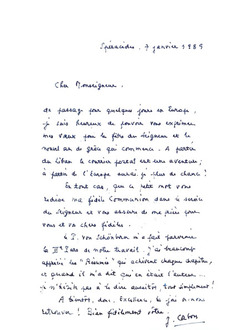 Spéracèdes, 7 janvier 1989
Cher Monseigneur,
de passage pour quelques jours en Europe,
je suis heureux de pouvoir vous exprimer
mes vœux pour la fête du Seigneur et le
nouvel an de grâce qui commence. A partir
du Liban le courrier postal est une aventure ;
à partir de l'Europe aurai-je plus de chance ?
En tout cas, que ce petit mot vous
redise ma fidèle Communion dans le service
du Seigneur et vous assure de ma prière pour
vous et vos chers fidèles.
Le P. von Schönborn m'a fait parvenir
la IIe Partie de notre travail. J'ai beaucoup
apprécié les "Résumés" qui achèvent chaque chapitre,
et quand il m'a dit qui en était l'auteur...
je n'hésite pas à le dire aussitôt, tout simplement !
A bientôt, donc, Excellence, la joie de nous
retrouver ! Bien fidèlement vôtre
J. Corbon